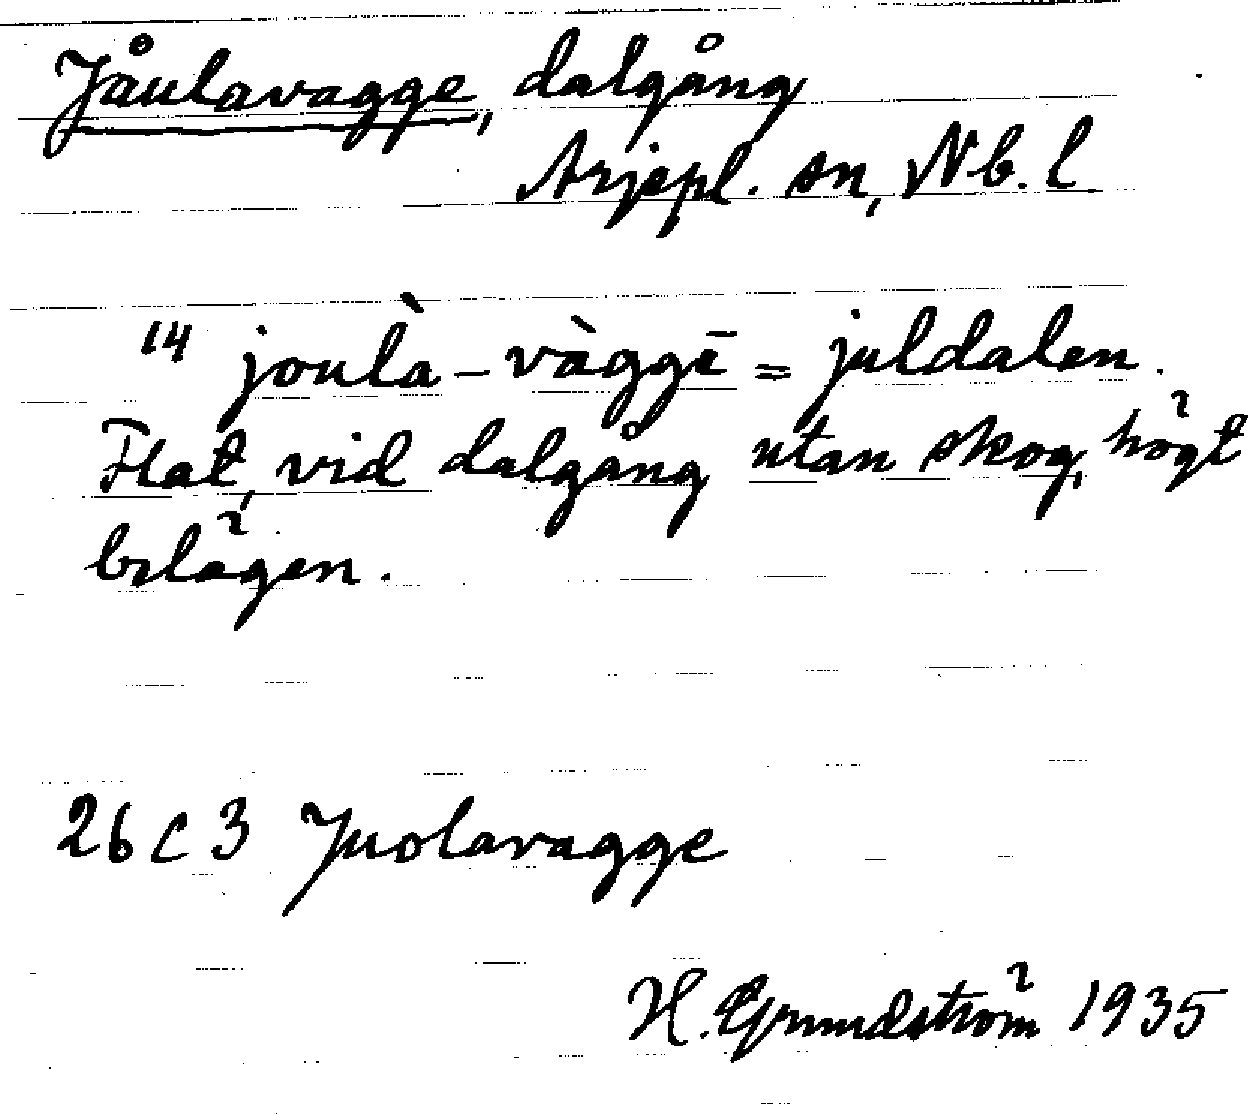 Jåulavagge, dalgång
Arjepl. sn, Nb. l
14 joulà-vàggē = juldalen.
Flat, vid dalgång utan skog, högt
belägen.
26 C 3 Juolavagge
H. Grundström 1935